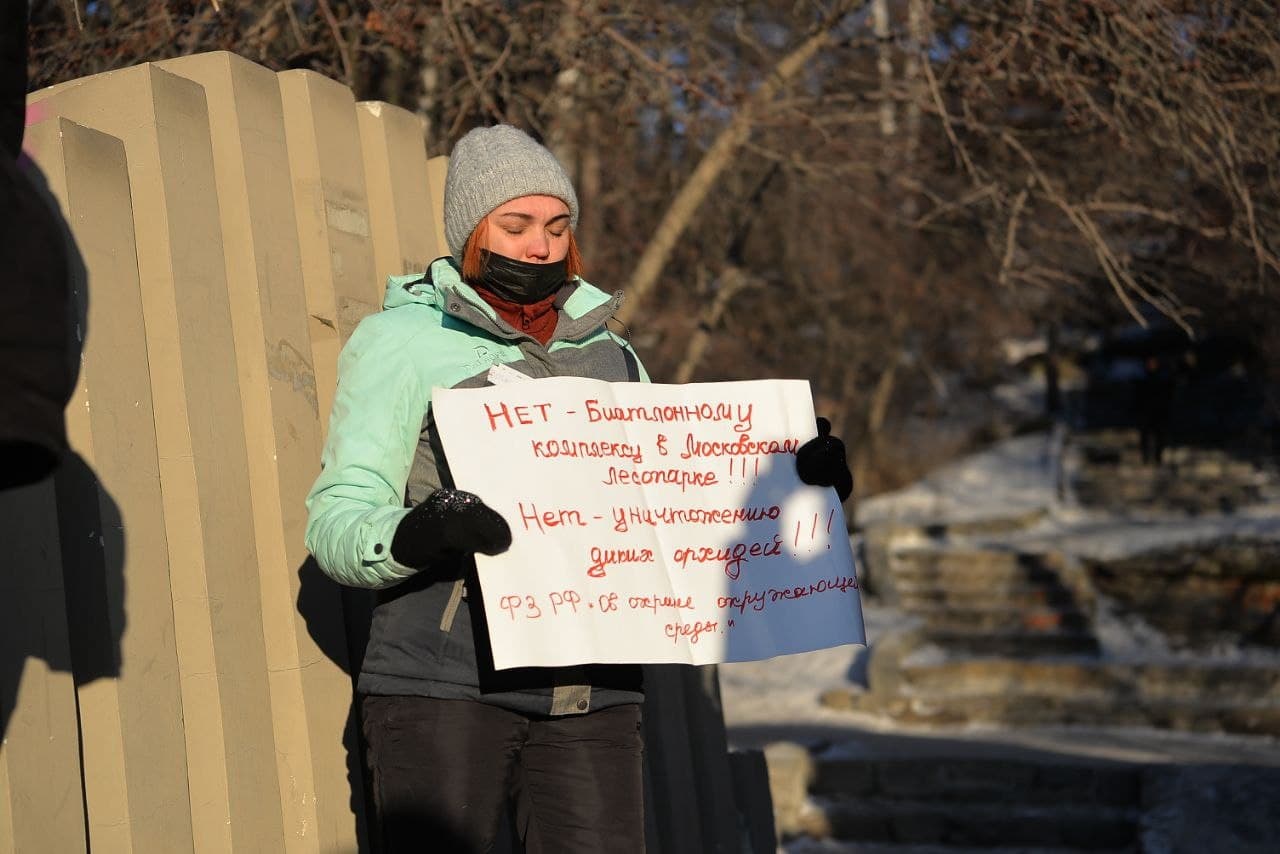 Нет - Биатлонному
комплексу в Московском
лесопарке!!!
Нет - уничтожению
диких орхидей!!!
ФЗ РФ "Об охране окружающей
среды."